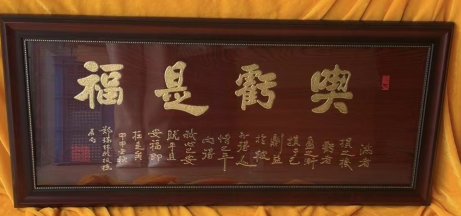 喫虧是福
滿者
損之機
虧者
盈之漸
損于己
則益
於彼
外得人
情之平
內得
我心之安
既平且
安福即
在是矣